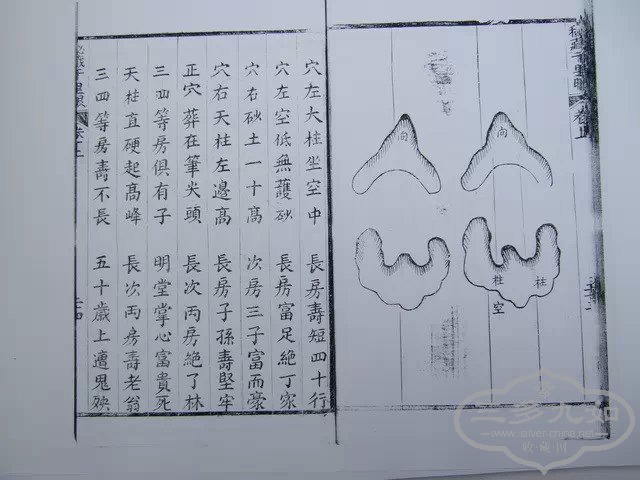 向
向
柱 柱
空
穴左大柱坐空中 長房壽短四十行
穴左空低無護砂 長房富足絶丁家
穴右砂土一十高 次房三子富而豪
穴右天柱左邊高 長房子孫壽堅牢
正穴葬在筆尖頭 長次丙房絶了林
三四等房俱有子 明堂掌心富貴死
天柱直硬起高峰 長次丙房壽老翁
三四等房壽不長 五十歲上遭鬼殃
www.silver-china.net